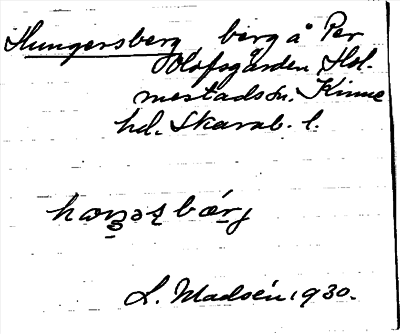 Hungersberg berg å Per
Olofsgården, Hol-
mestads sn. Kinne
hd. Skarab. l.
L. Madsén 1930.